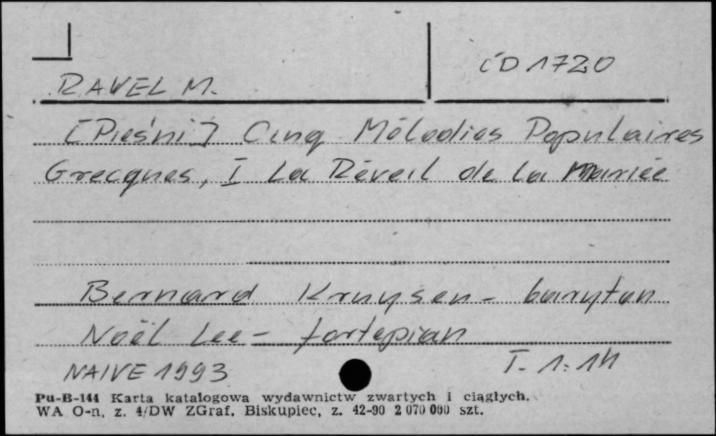 RAVEL M.
CD 1720
[Pieśni] Cinq Mélodies Populaires
Grecques, I La Réveil de la Mariée
Bernard Kruysen - baryton
Noël Lee - fortepian
NAIVE 1993
T. 1: 1'14
Pu-B-144 Karta katalogowa wydawnictw zwartych i ciągłych.
WA O-n, z. 4/DW ZGraf. Biskupiec, z. 42-90 2 070 000 szt.